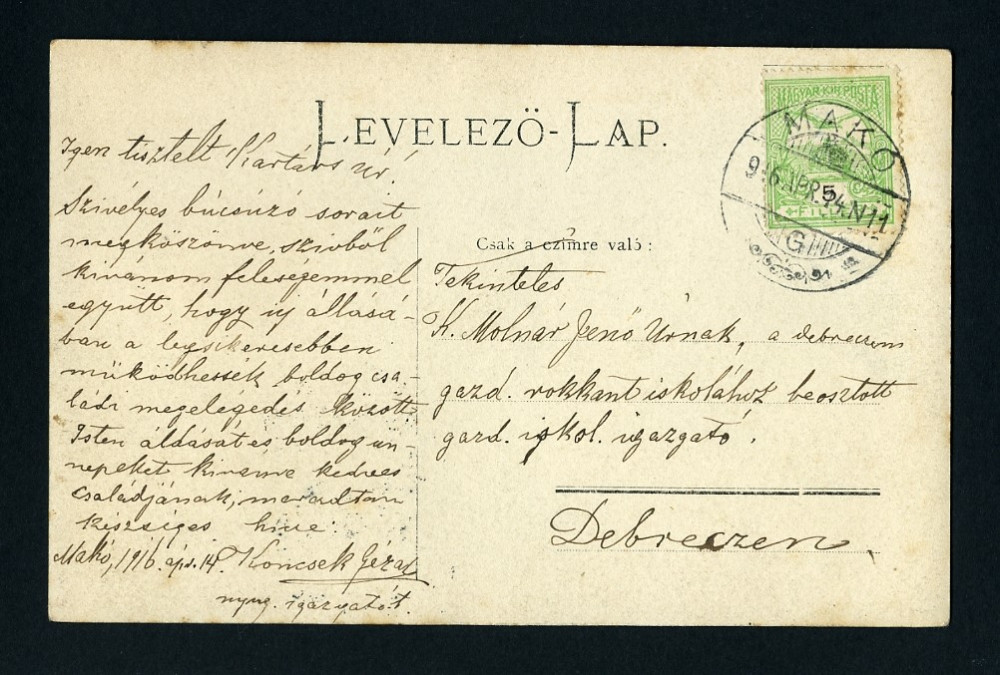 LEVELEZÖ-LAP.
MAGYAR KIR. POSTA
MAKÓ
Igen tisztelt Kartárs Úr!
Szivélyes búcsúzó sorait
megköszönve, szivből
kivánom feleségemmel
együtt, hogy új állásá-
ban a legsikeresebben
működhessék boldog csa-
ládi megelégedés között.
Isten áldását és boldog ün-
nepeket kivánva kedves
családjának, maradtam
készséges hive:
Makó, 1916. ápr. 14. Koncsek Géza
nyug. igazgató.
Csak a czimre való:
Tekintetes
K. Molnár Jenő Úrnak, a debreczeni
gazd. rokkant iskolához beosztott
gazd. iskol. igazgató.
Debreczen.